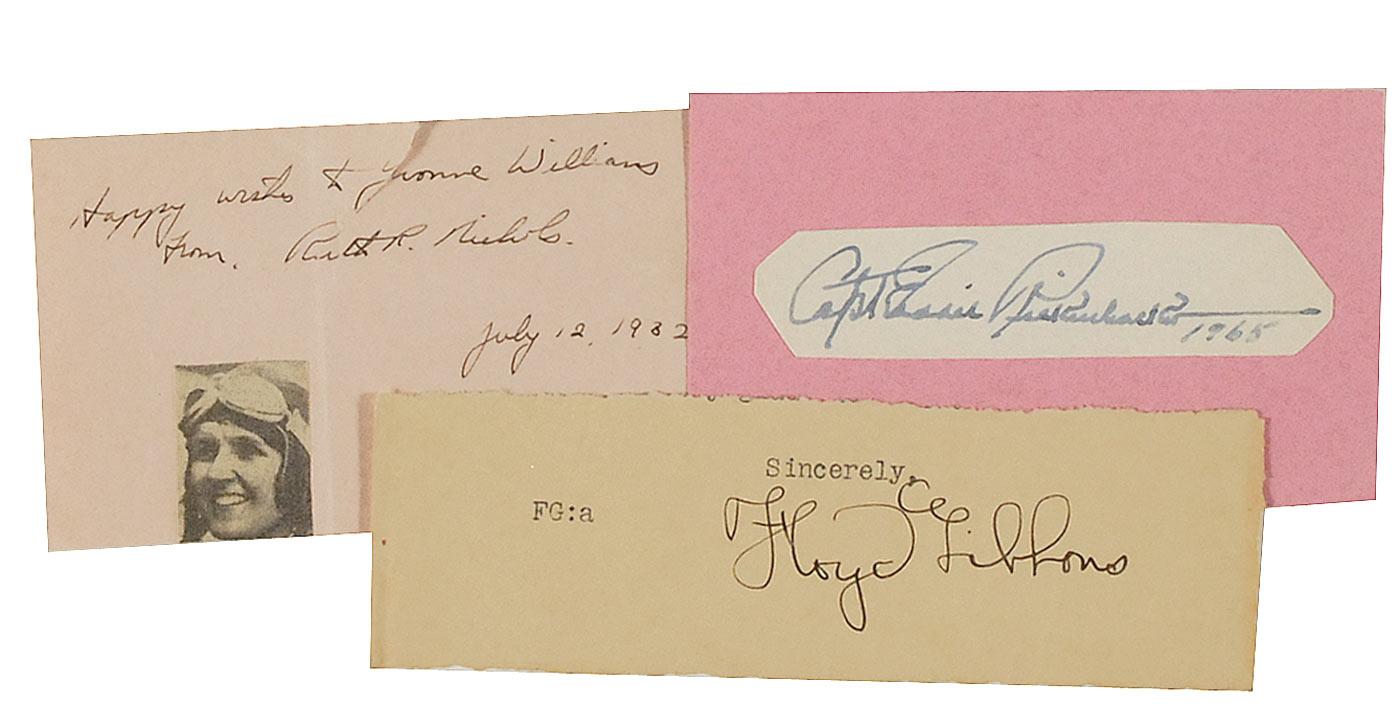 Happy wishes to Yvonne Williams
from. Ruth R. Nichols.
July 12, 1932
Capt Eddie Rickenbacker
1965
Sincerely,
FG:a
Floyd Gibbons